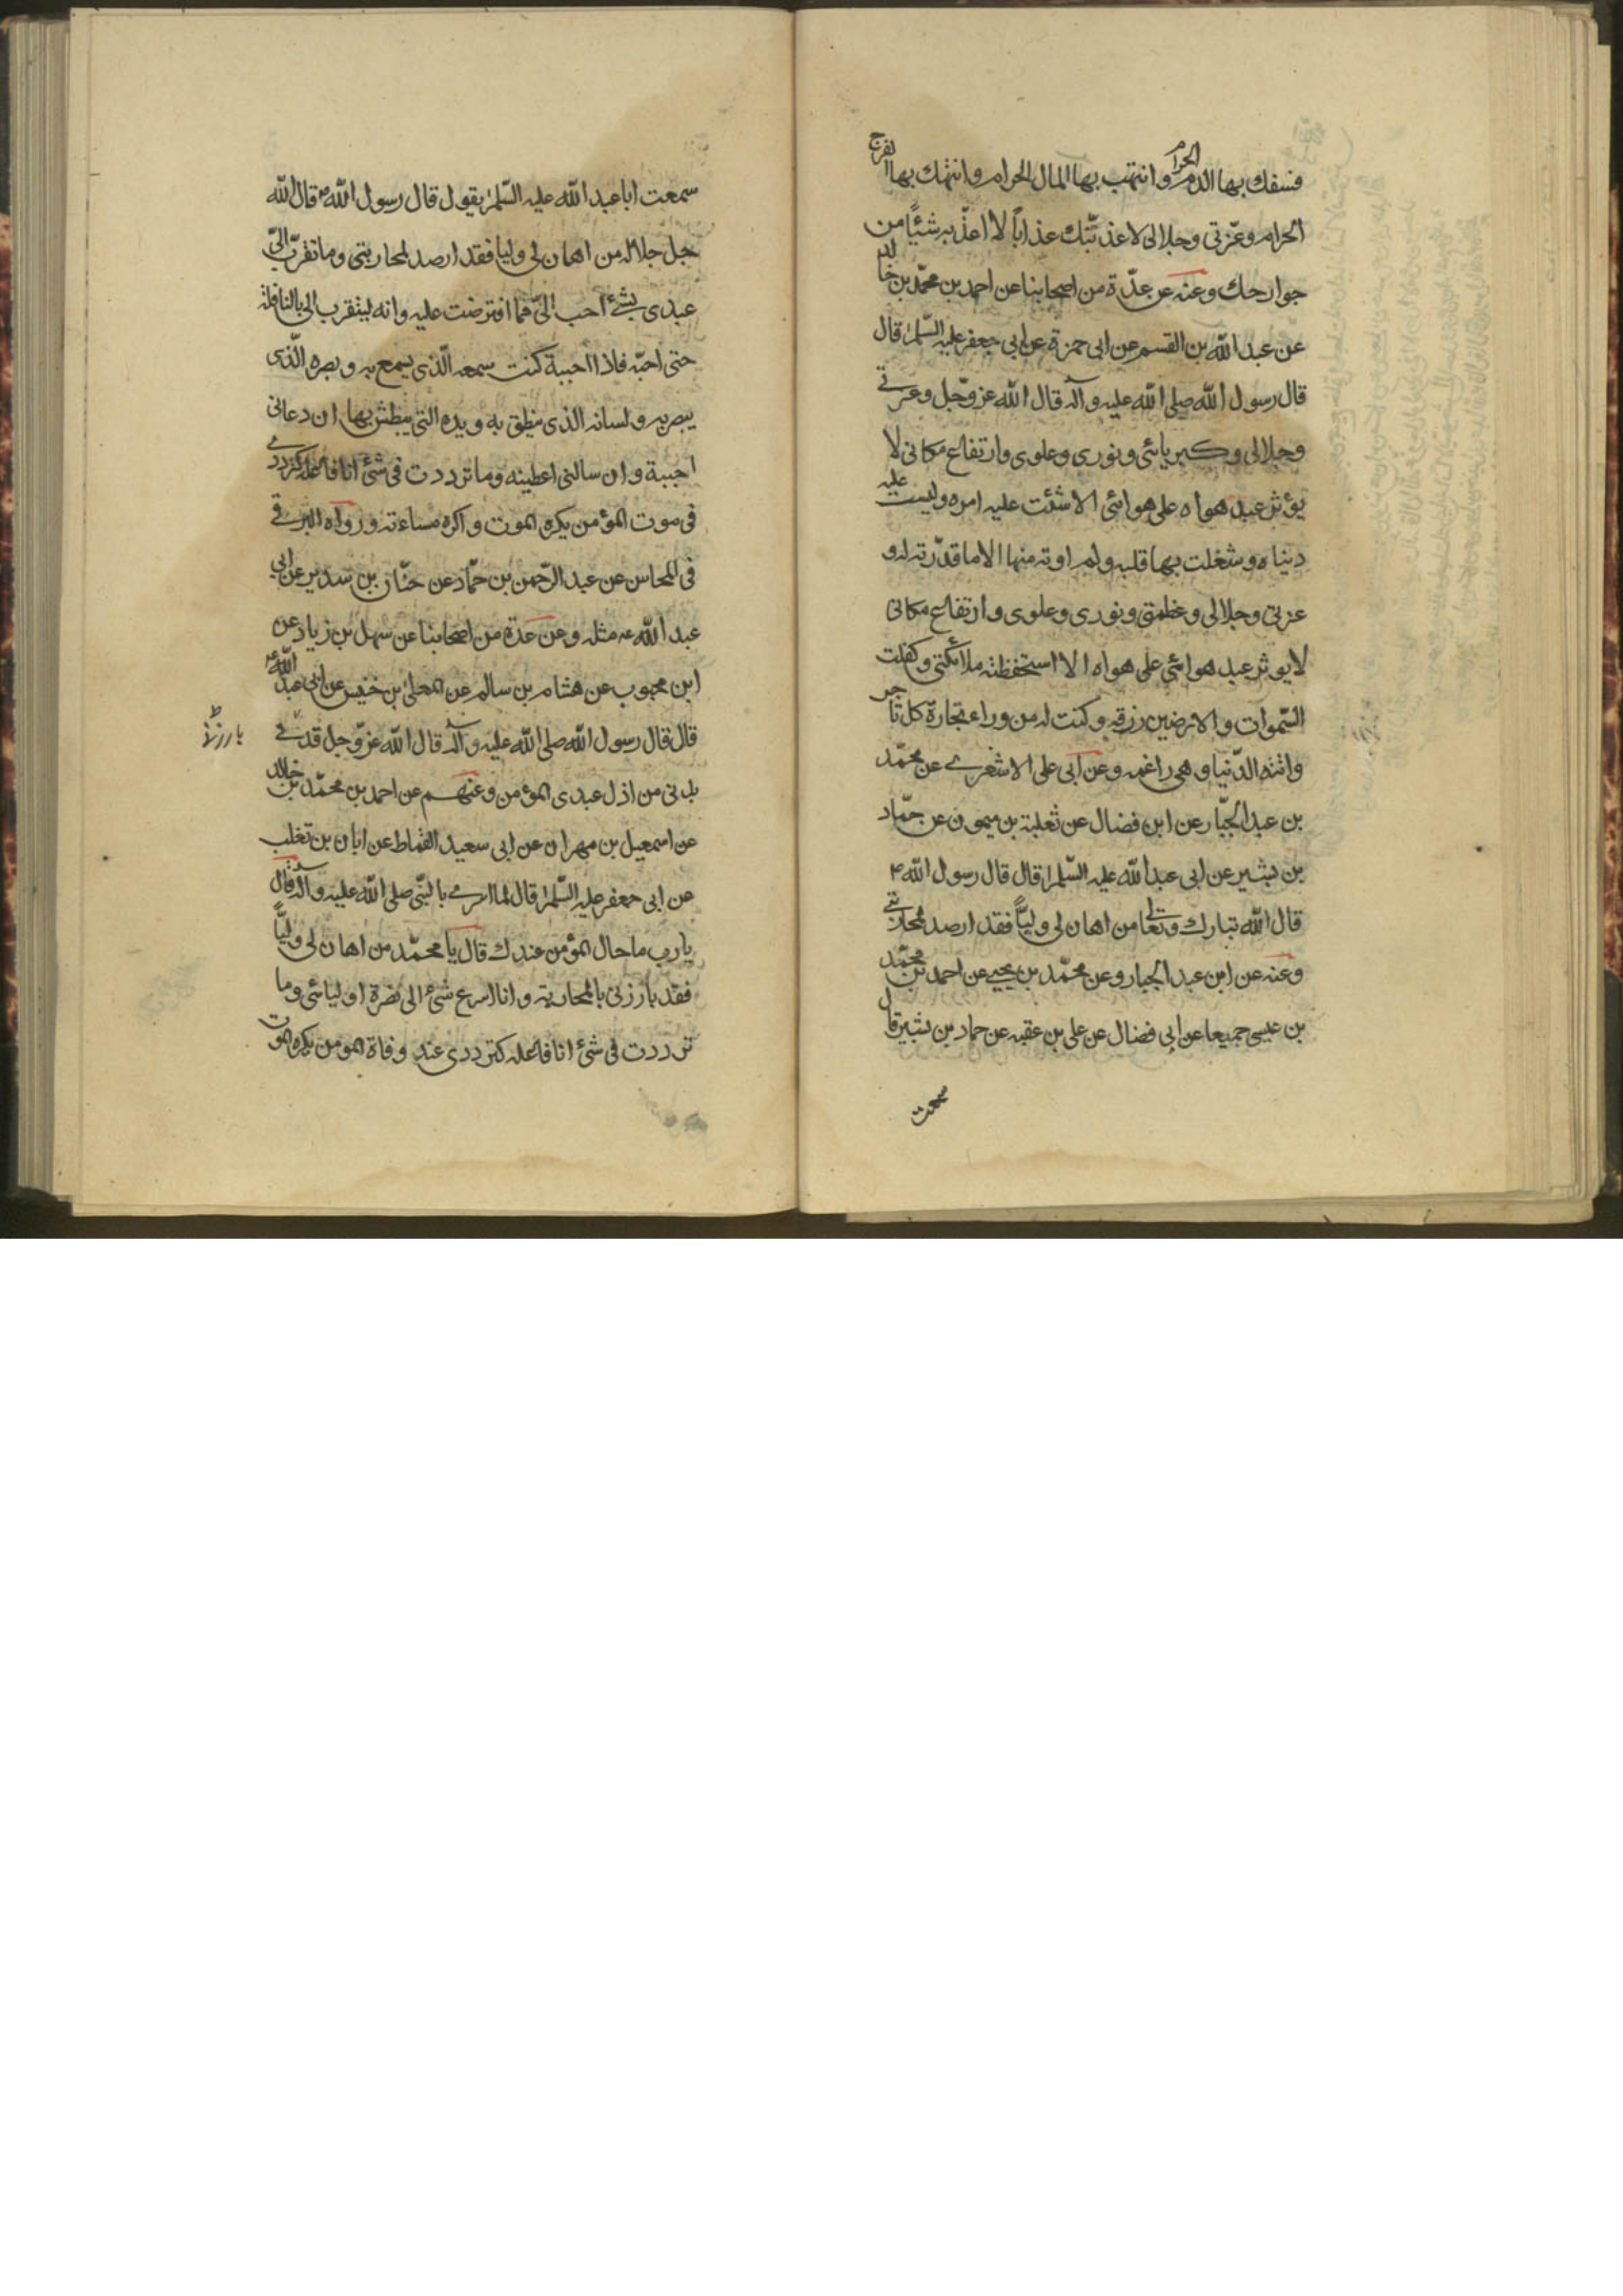 فسفك بها الدم الحرام وانتهب بها المال الحرام وانتهك بها الفرج
الحرام وعزتي وجلالى لاعذبنّك عذاباً لا اعذّب به شيئًا من
جوارحك وعنه عن عدّة من اصحابنا عن احمد بن محمّد بن خالد
عن عبد الله بن القسم عن ابى حمزة عن ابي جعفر عليه السّلم قال
قال رسول الله صلى الله عليه وآله قال الله عز وجّل وعزتي
وجلالى وكبريائى ونورى وعلوى وارتفاع مكانى لا
يؤثر عبد هواه على هوائى الا شتت عليه امره ولبست عليه
دنياه وشغلت بها قلبه ولم اوته منها الا ما قدّرته له و
عزتى وجلالى وعظمتى ونورى وعلوى وارتفاع مكانى
لا يوثر عبد هوائي على هواه الا استحفظته ملائكتى وكفلت
السّموات والارضين رزقه وكنت له من وراء تجارة كل تاجر
واتته الدّنيا وهى راغمه وعن ابى على الاشعرے عن محمّد
بن عبد الجبّار عن ابن فضال عن ثعلبة بن ميمون عن حمّاد
بن بشير عن ابى عبد الله عليه السّلم قال قال رسول الله ص
قال الله تبارك وتعالى من اهان لى وليّاً فقد ارصد لمحاربتي
وعنه عن ابن عبد الجبار وعن محمّد بن يحيے عن احمد بن محمّد
بن عيسى جميعا عن ابى فضال عن على بن عقبه عن حماد بن بشير قال
سمعت
سمعت ابا عبد الله عليه السّلم يقول قال رسول الله ص قال الله
جل جلاله من اهان لى وليا فقد ارصد لمحاربتى وما تقرّب الىّ
عبدى بشئ احب الىّ مما افترضت عليه وانه ليتقرب الى بالنافلة
حتى احبّه فاذا احببة كنت سمعه الّذى يسمع به وبصره الّذى
يبصر به ولسانه الذى ينطق به ويده التى يبطش بها ان دعانى
اجببة وان سالنى اعطيته وما ترددت فى شئ انا فاعله كترددے
فى موت المؤمن يكره الموت واكره مساءته ورواه البرقے
فى المحاسن عن عبد الرّحمن بن حمّاد عن حنّان بن سدير عن ابي
عبد الله ع مثله وعن عدّة من اصحابنا عن سهل بن زياد عن
ابن محبوب عن هشام بن سالم عن المعلى بن خنيس عن ابى عبد الله ع
قال قال رسول الله صلى الله عليه وآله قال الله عزّ وجل قد نے
بارزنے
بذنى من اذل عبدى المؤمن وعنهم عن احمد بن محمّد بن خالد
عن اسمعيل بن مهران عن ابى سعيد القماط عن ابان بن تغلب
عن ابى جعفر عليه السّلم قال لما اسرے بالنّبى صلى الله عليه وآله قال
يا رب ما حال المؤمن عندك قال يا محمّد من اهان لى وليّاً
فقد بارزنى بالمحاربة وانا اسرع شئ الى نصرة اوليائى وما
ترددت فى شئ انا فاعله كترددى عند وفاة المومن يكره الموت